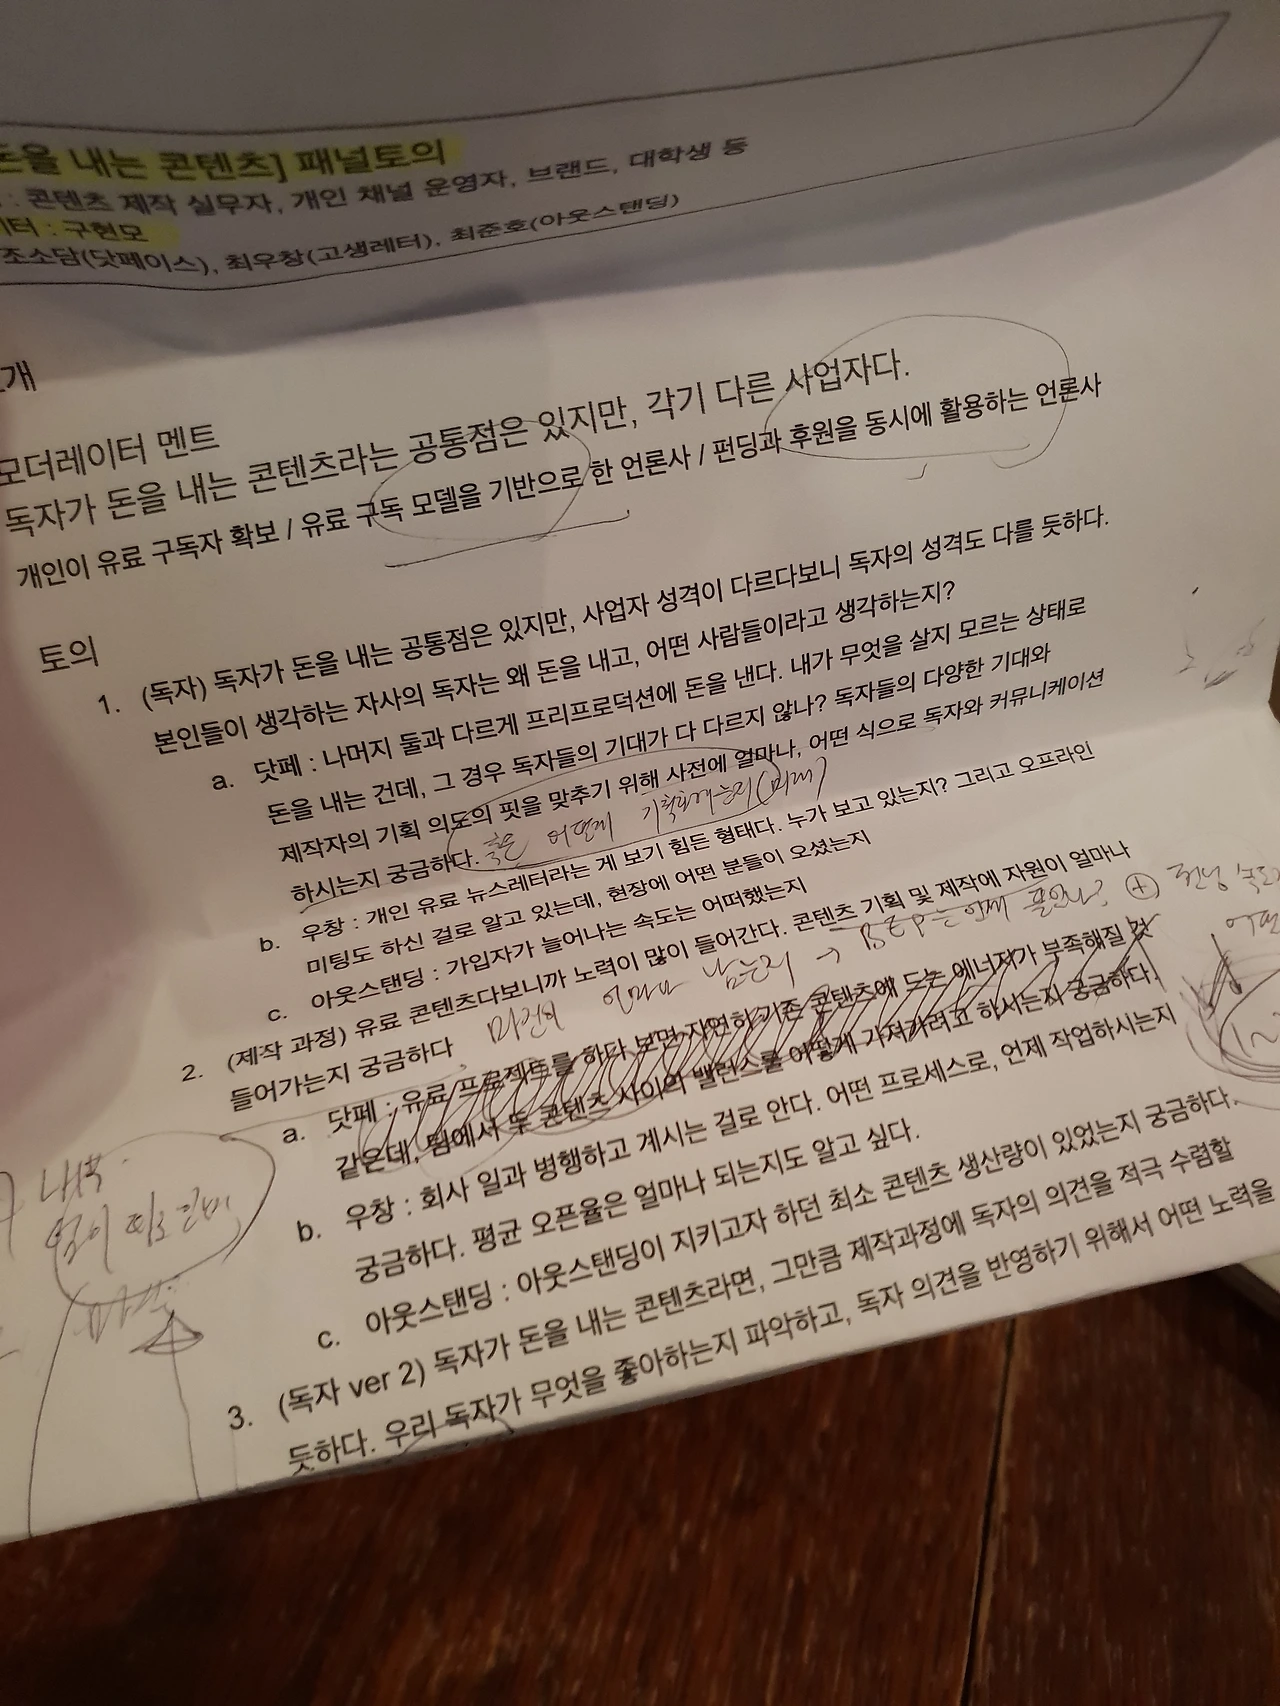 돈을 내는 콘텐츠] 패널토의
: 콘텐츠 제작 실무자, 개인 채널 운영자, 브랜드, 대학생 등
터 : 구현모
조소담(닷페이스), 최우창(고생레터), 최준호(아웃스탠딩)
개
모더레이터 멘트
독자가 돈을 내는 콘텐츠라는 공통점은 있지만, 각기 다른 사업자다.
개인이 유료 구독자 확보 / 유료 구독 모델을 기반으로 한 언론사 / 펀딩과 후원을 동시에 활용하는 언론사
토의
1. (독자) 독자가 돈을 내는 공통점은 있지만, 사업자 성격이 다르다보니 독자의 성격도 다를 듯하다.
본인들이 생각하는 자사의 독자는 왜 돈을 내고, 어떤 사람들이라고 생각하는지?
a. 닷페 : 나머지 둘과 다르게 프리프로덕션에 돈을 낸다. 내가 무엇을 살지 모르는 상태로
돈을 내는 건데, 그 경우 독자들의 기대가 다 다르지 않나? 독자들의 다양한 기대와
제작자의 기획 의도의 핏을 맞추기 위해 사전에 얼마나, 어떤 식으로 독자와 커뮤니케이션
하시는지 궁금하다. 혹은 어떻게
b. 우창 : 개인 유료 뉴스레터라는 게 보기 힘든 형태다. 누가 보고 있는지? 그리고 오프라인
미팅도 하신 걸로 알고 있는데, 현장에 어떤 분들이 오셨는지
c. 아웃스탠딩 : 가입자가 늘어나는 속도는 어떠했는지
2. (제작 과정) 유료 콘텐츠다보니까 노력이 많이 들어간다. 콘텐츠 기획 및 제작에 자원이 얼마나
들어가는지 궁금하다 얼마나 남는지 → BEP는 언제
a. 닷페 : 유료 프로젝트를 하다 보면 자연히 기존 콘텐츠에 드는 에너지가 부족해질 것
같은데, 팀에서 두 콘텐츠 사이의 밸런스를 어떻게 가져가려고 하시는지 궁금하다.
b. 우창 : 회사 일과 병행하고 계시는 걸로 안다. 어떤 프로세스로, 언제 작업하시는지
궁금하다. 평균 오픈율은 얼마나 되는지도 알고 싶다.
c. 아웃스탠딩 : 아웃스탠딩이 지키고자 하던 최소 콘텐츠 생산량이 있었는지 궁금하다.
3. (독자 ver 2) 독자가 돈을 내는 콘텐츠라면, 그만큼 제작과정에 독자의 의견을 적극 수렴할
듯하다. 우리 독자가 무엇을 좋아하는지 파악하고, 독자 의견을 반영하기 위해서 어떤 노력을